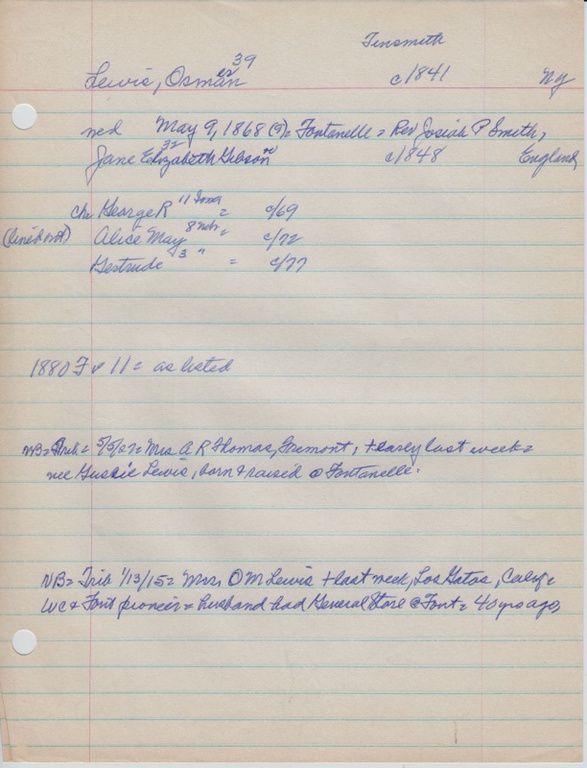 Tinsmith
Lewis, Osman es 39 c1841 Ny
med May 9, 1868 (9)= Fontanelle = Rev Josiah P Smith,
Jane Elizabeth Gibson 32 c1848 England
Ch George R 11 Iowa = c/69
Alice May 8 Neb = c/72
Gertrude 3 " = c/77
1880 F 11 = as listed
NB= Trib = Mrs A R Thomas, Fremont, + early last week =
nee Gussie Lewis, born + raised @ Fontanelle.
NB= Trib 1/13/15= Mrs O M Lewis + last week, Los Gatos, Calif =
WC + Font pioneer = husband had General Store @ Font = 40 yrs ago,